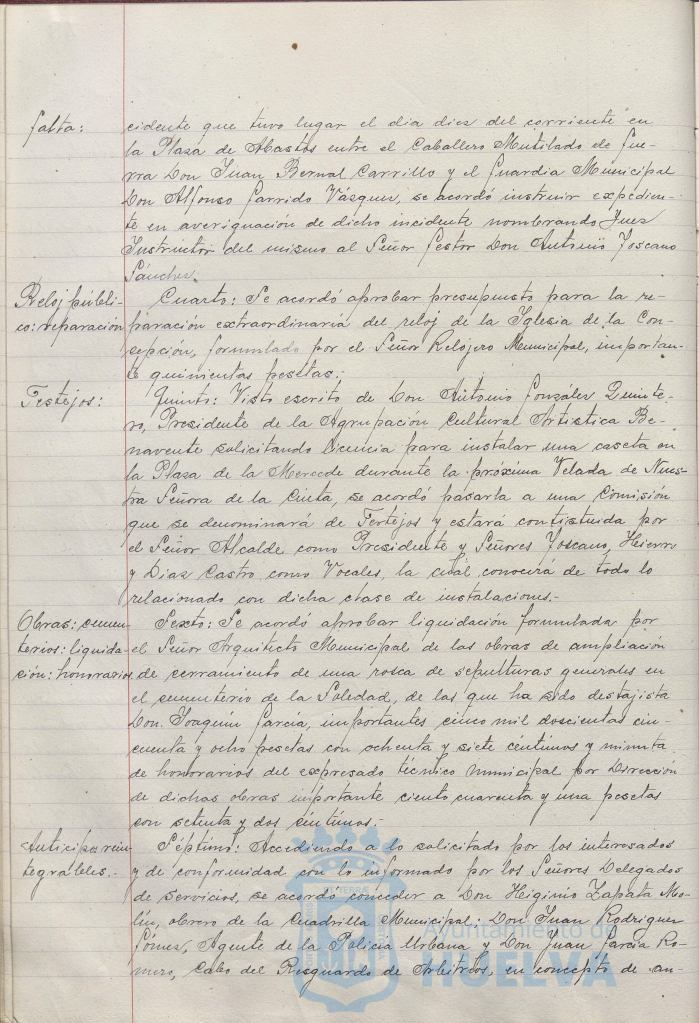 falta: cidente que tuvo lugar el dia diez del corriente en
la Plaza de Abastos entre el Caballero Mutilado de Gue-
rra Don Juan Bernal Carrillo y el Guardia Municipal
Don Alfonso Garrido Vásquez, se acordó instruir expedien-
te en averiguación de dicho incidente nombrando Juez
Instructor del mismo al Señor Gestor Don Antonio Toscano
Sánchez.
Reloj públi- Cuarto: Se acordó aprobar presupuesto para la re-
co: reparación paración extraordinaria del reloj de la Iglesia de la Con-
cepción, formulado por el Señor Relojero Municipal, importan-
te quinientas pesetas.
Festejos: Quinto: Visto escrito de Don Antonio González Quinte-
ro, Presidente de la Agrupación Cultural Artistica Be-
navente solicitando licencia para instalar una caseta en
la Plaza de la Mercede durante la próxima Velada de Nues-
tra Señora de la Cinta, se acordó pasarla a una Comisión
que se denominará de Festejos y estará contistuida por
el Señor Alcalde como Presidente y Señores Toscano, Hierro
y Diaz Castro como Vocales, la cual conocerá de todo lo
relacionado con dicha clase de instalaciones.-
Obras: cemen- Sexto: Se acordó aprobar liquidación formulada por
terios: liquida- el Señor Arquitecto Municipal de las obras de ampliación
ción: honorarios de cerramiento de una rosca de sepulturas generales en
el cementerio de la Soledad, de las que ha sido destajista
Don Joaquín García, importantes cinco mil doscientas cin-
cuenta y ocho pesetas con ochenta y siete céntimos y minuta
de honorarios del expresado técnico municipal por Dirección
de dichas obras importante ciento cuarenta y una pesetas
con setenta y dos céntimos.-
Anticipos rein- Séptimo: Accediendo a lo solicitado por los interesados
tegrables.- y de conformidad con lo informado por los Señores Delegados
de servicios, se acordó conceder a Don Higinio Zapata Mo-
lín, obrero de la Cuadrilla Municipal; Don Juan Rodriguez
Gómez, Agente de la Policia Urbana y Don Juan García Ro-
mero, Cabo del Resguardo de Arbitrios, en concepto de an-
Ayuntamiento de
HUELVA